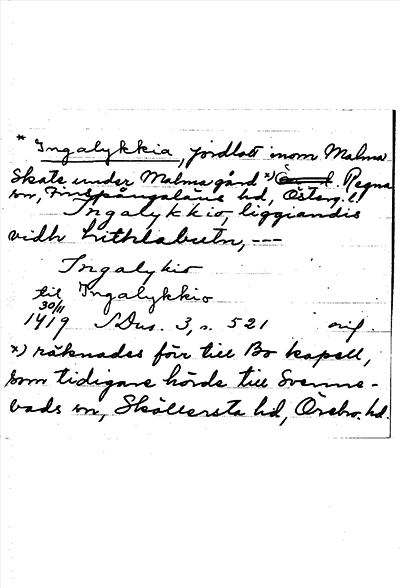 * Ingalykkia, jordlott inom Malma
Skate under Malma gård x) Regna
sn, Finspångaläns hd, Österg. l.
Ingalykkio, liggiandis
vidh Lithlabutn, ---
Ingalykio
til Ingalykkio
30/11
1419 SDns. 3, s. 521 orig.
x) räknades förr till Bo kapell,
som tidigare hörde till Svenne-
vads sn, Sköllersta hd, Örebro. hd.